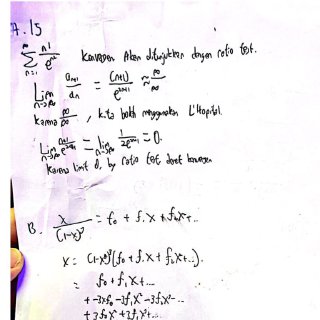 A. 15
∞ Σ n=1 n! / e^n² Konvergen Akan ditunjukkan dengan ratio test.
Lim n→∞ a_n+1 / a_n = (n+1) / e^2n+1 ≈ ∞/∞
Karena ∞/∞, kita boleh menggunakan L'Hopital.
Lim n→∞ n+1 / e^2n+1 = lim n→∞ 1 / 2e^2n+1 = 0.
Karena limit 0, by ratio test deret konvergen
B. x / (1-x)³ = f₀ + f₁x + f₂x² + ...
x = (1-x)³ (f₀ + f₁x + f₂x² + ...).
= f₀ + f₁x + ...
+ -3xf₀ - 3f₁x² - 3f₂x³ - ...
+ 3f₀x² + 3f₁x³ + ...